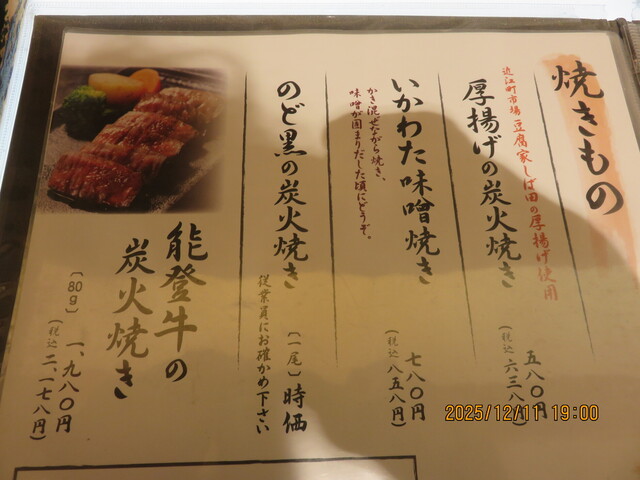 焼きもの
近江町市場 豆腐家しば田の厚揚げ使用
厚揚げの炭火焼き
五八〇円
(税込 六三八円)
いかわた味噌焼き
かき混ぜながら焼き、
味噌が固まりだした頃にどうぞ。
七八〇円
(税込 八五八円)
のど黒の炭火焼き
(一尾) 時価
従業員にお確かめ下さい
能登牛の
炭火焼き
(80g) 一、九八〇円
(税込 二、一七八円)
2025/12/11 19:00